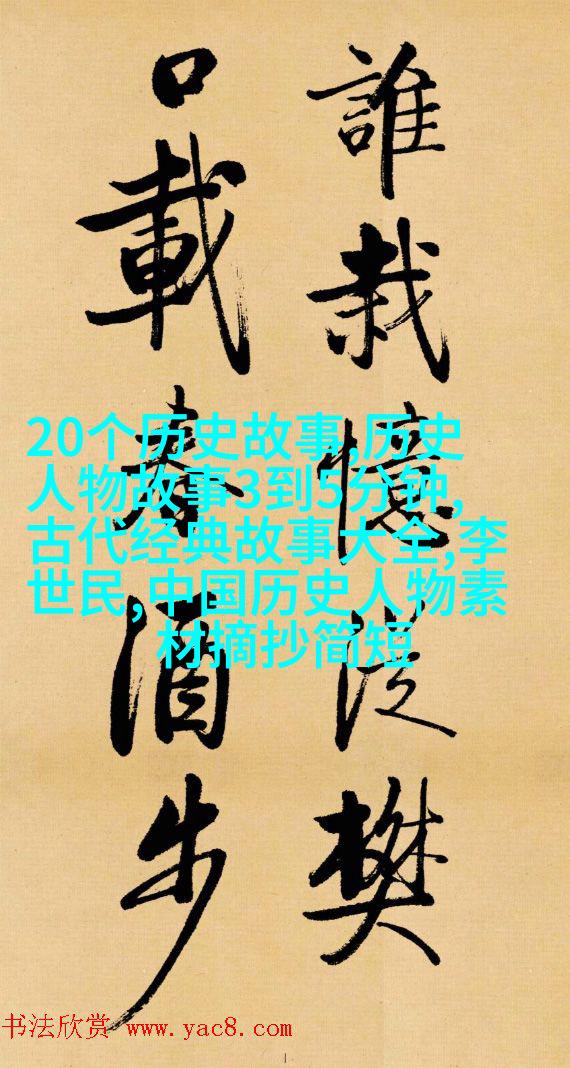 誰栽憶從樊
口載春酒步
20个历史故事,历史
人物故事3到5分钟,
古代经典故事大全,李
世民,中国历史人物素
材摘抄简短
书法欣赏 www.yac8.com